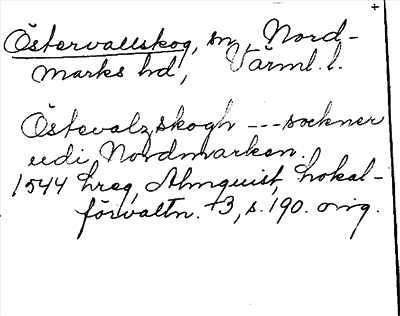 Östervallskog, sn, Nord-
marks hd, Värml. l.
Östevalzskogh --- sockner
udi Nordmarken.
1544 hreg, Almquist, Lokal-
förvaltn. +3, s. 190. orig.